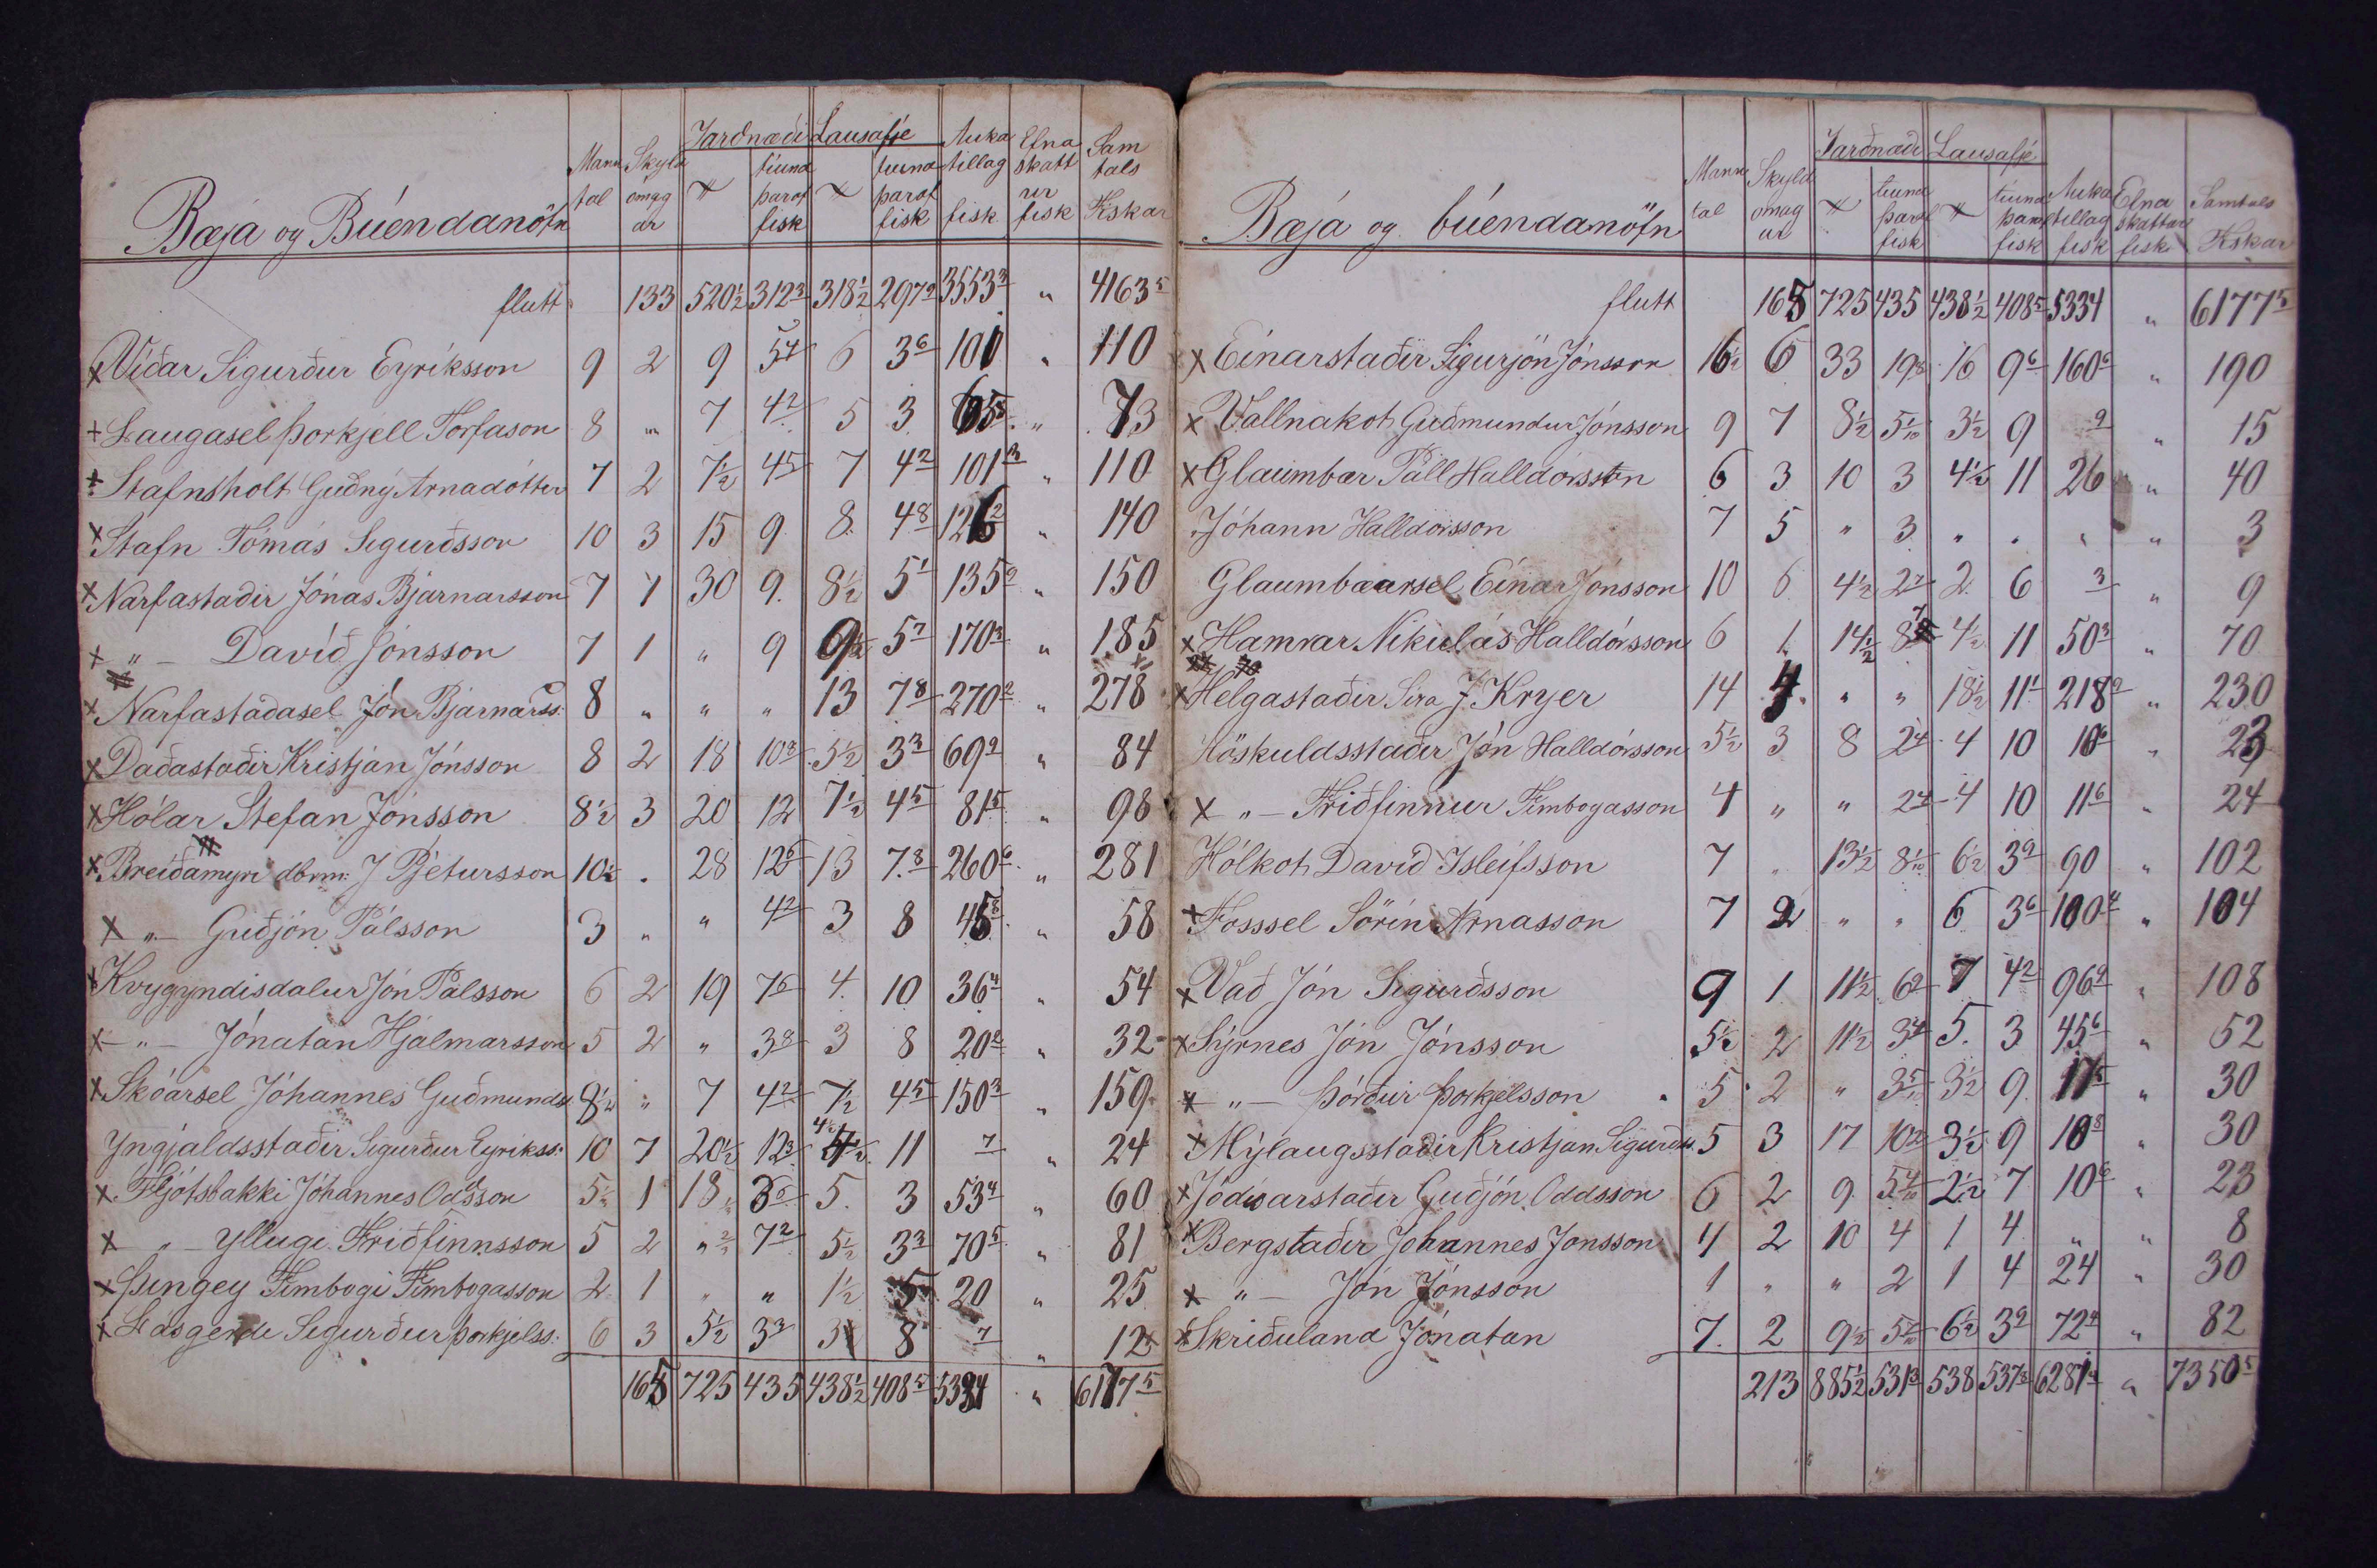 Bæja og Búendanöfn Mann tal Skyld ómag ar Jarðnæði tiund þaraf fisk Lausafje tiund þaraf fisk Auka tillag fisk Efna skatt ur fisk Sam tals Fiskar
flutt 133 520½ 312 3 318½ 297 9 3553 3 " 4163 5
x Viðar Sigurður Eyríksson 9 2 9 5 4 6 3 6 101 " 110
+ Laugasel Þorkjell Torfason 8 " 7 4 2 5 3 65 8 " 73
x Stafnsholt Guðný Arnadótter 7 2 7½ 4 5 7 4 2 101 3 " 110
x Stafn Tómás Sigurðsson 10 3 15 9 8 4 8 126 2 " 140
x Narfastaðir Jónas Bjarnarsson 7 1 30 9 8½ 5 1 135 9 " 150
x " – Davíð Jónsson 7 1 " 9 9½ 5 7 170 3 " 185
x Narfastaðasel Jón Bjarnarss: 8 " " " 13 7 8 270 2 " 278
x Daðastaðir Kristján Jónsson 8 2 18 10 3 5½ 3 3 69 9 " 84
x Hólar Stefan Jónsson 8½ 3 20 12 7½ 4 5 81 5 " 98
x Breiðamyri dbrm: J Pjetursson 10½ . 28 12 6 13 7 8 260 6 " 281
x " – Guðjón Pálsson 3 " " 4 2 3 8 45 8 " 58
x Kvygyndisdalur Jón Pálsson 6 2 19 7 6 4 10 36 4 " 54
x – " – Jónatan Hjálmarsson 5 2 " 3 8 3 8 20 2 " 32
x Skóarsel Jóhannes Guðmunds 8½ " 7 4 2 7½ 4 5 150 3 " 159
Yngjaldsstaðir Sigurður Eyrikss: 10 7 20½ 12 3 4½ 11 7 " 24
x Fljótsbakki Jóhannes Oddsson 5½ 1 18 3 6 5 3 53 4 " 60
x " – Yllugi Friðfinnsson 5 2 " 7 2 5½ 3 3 70 5 " 81
x Þingey Fimbogi Fimbogasson 2 1 " " 1½ 5 20 " 25
x Lásgerde Sigurður Þorkjelss: 6 3 5½ 3 3 3 8 7 " 12
165 725 435 438½ 408 5 5334 " 6177 5
Bæja og búendanöfn Mann tal Skyld omag ar Jarðnæði tiund þaraf fisk Lausafjé tiund þaraf fisk Auka tillag fisk Efna skattar fisk Samtals Fiskar
flutt 165 725 435 438½ 408 5 5334 " 6177 5
x Einarstaðir Sigurjón Jónsson 16½ 6 33 19 8 16 9 6 160 6 " 190
x Vallnakot Guðmundur Jónsson 9 7 8½ 5 1/10 3½ 9 9 " 15
x Glaumbær Páll Halldórsson 6 3 10 3 4½ 11 26 " 40
Jóhann Halldórsson 7 5 " 3 " " " " 3
Glaumbæarsel Einar Jónsson 10 6 4½ 2 7 2 6 3 " 9
x Hamrar Nikulás Halldórsson 6 1 14½ 8 7 4½ 11 50 3 " 70
x Helgastaðir Sira J Kryer 14 4 " " 18½ 11 1 218 9 " 230
Höskuldsstaðir Jón Halldórsson 5½ 3 8 2 4 4 10 10 6 " 23
x " – Friðfinnur Fimbogasson 4 " " 2 4 4 10 11 6 " 24
Hólkot Davíð Isleifsson 7 " 13½ 8 1/10 6½ 3 9 90 " 102
x Fosssel Sörin Arnasson 7 2 " " 6 3 6 100 4 " 104
x Vað Jón Sigurðsson 9 1 11½ 6 9 7 4 2 96 9 " 108
x Sýrnes Jón Jónsson 5½ 2 11½ 3 4 5 3 45 6 " 52
x " – Þórður Þorkjelsson 5 2 " 3 5/10 3½ 9 17 5 " 30
x Mýlaugsstaðir Kristjan Sigurðs 5 3 17 10 2 3½ 9 10 8 " 30
x Jódisarstaðir Guðjón Oddsson 6 2 9 5 4/10 2½ 7 10 6 " 23
x Bergstaðir Johannes Jonsson 4 2 10 4 1 4 " " 8
x " – Jón Jónsson 1 " " 2 1 4 24 " 30
x Skriðuland Jónatan 7 2 9½ 5 7/10 6½ 3 9 72 4 " 82
213 885½ 531 3 538 537 3 6281 4 " 7350 5